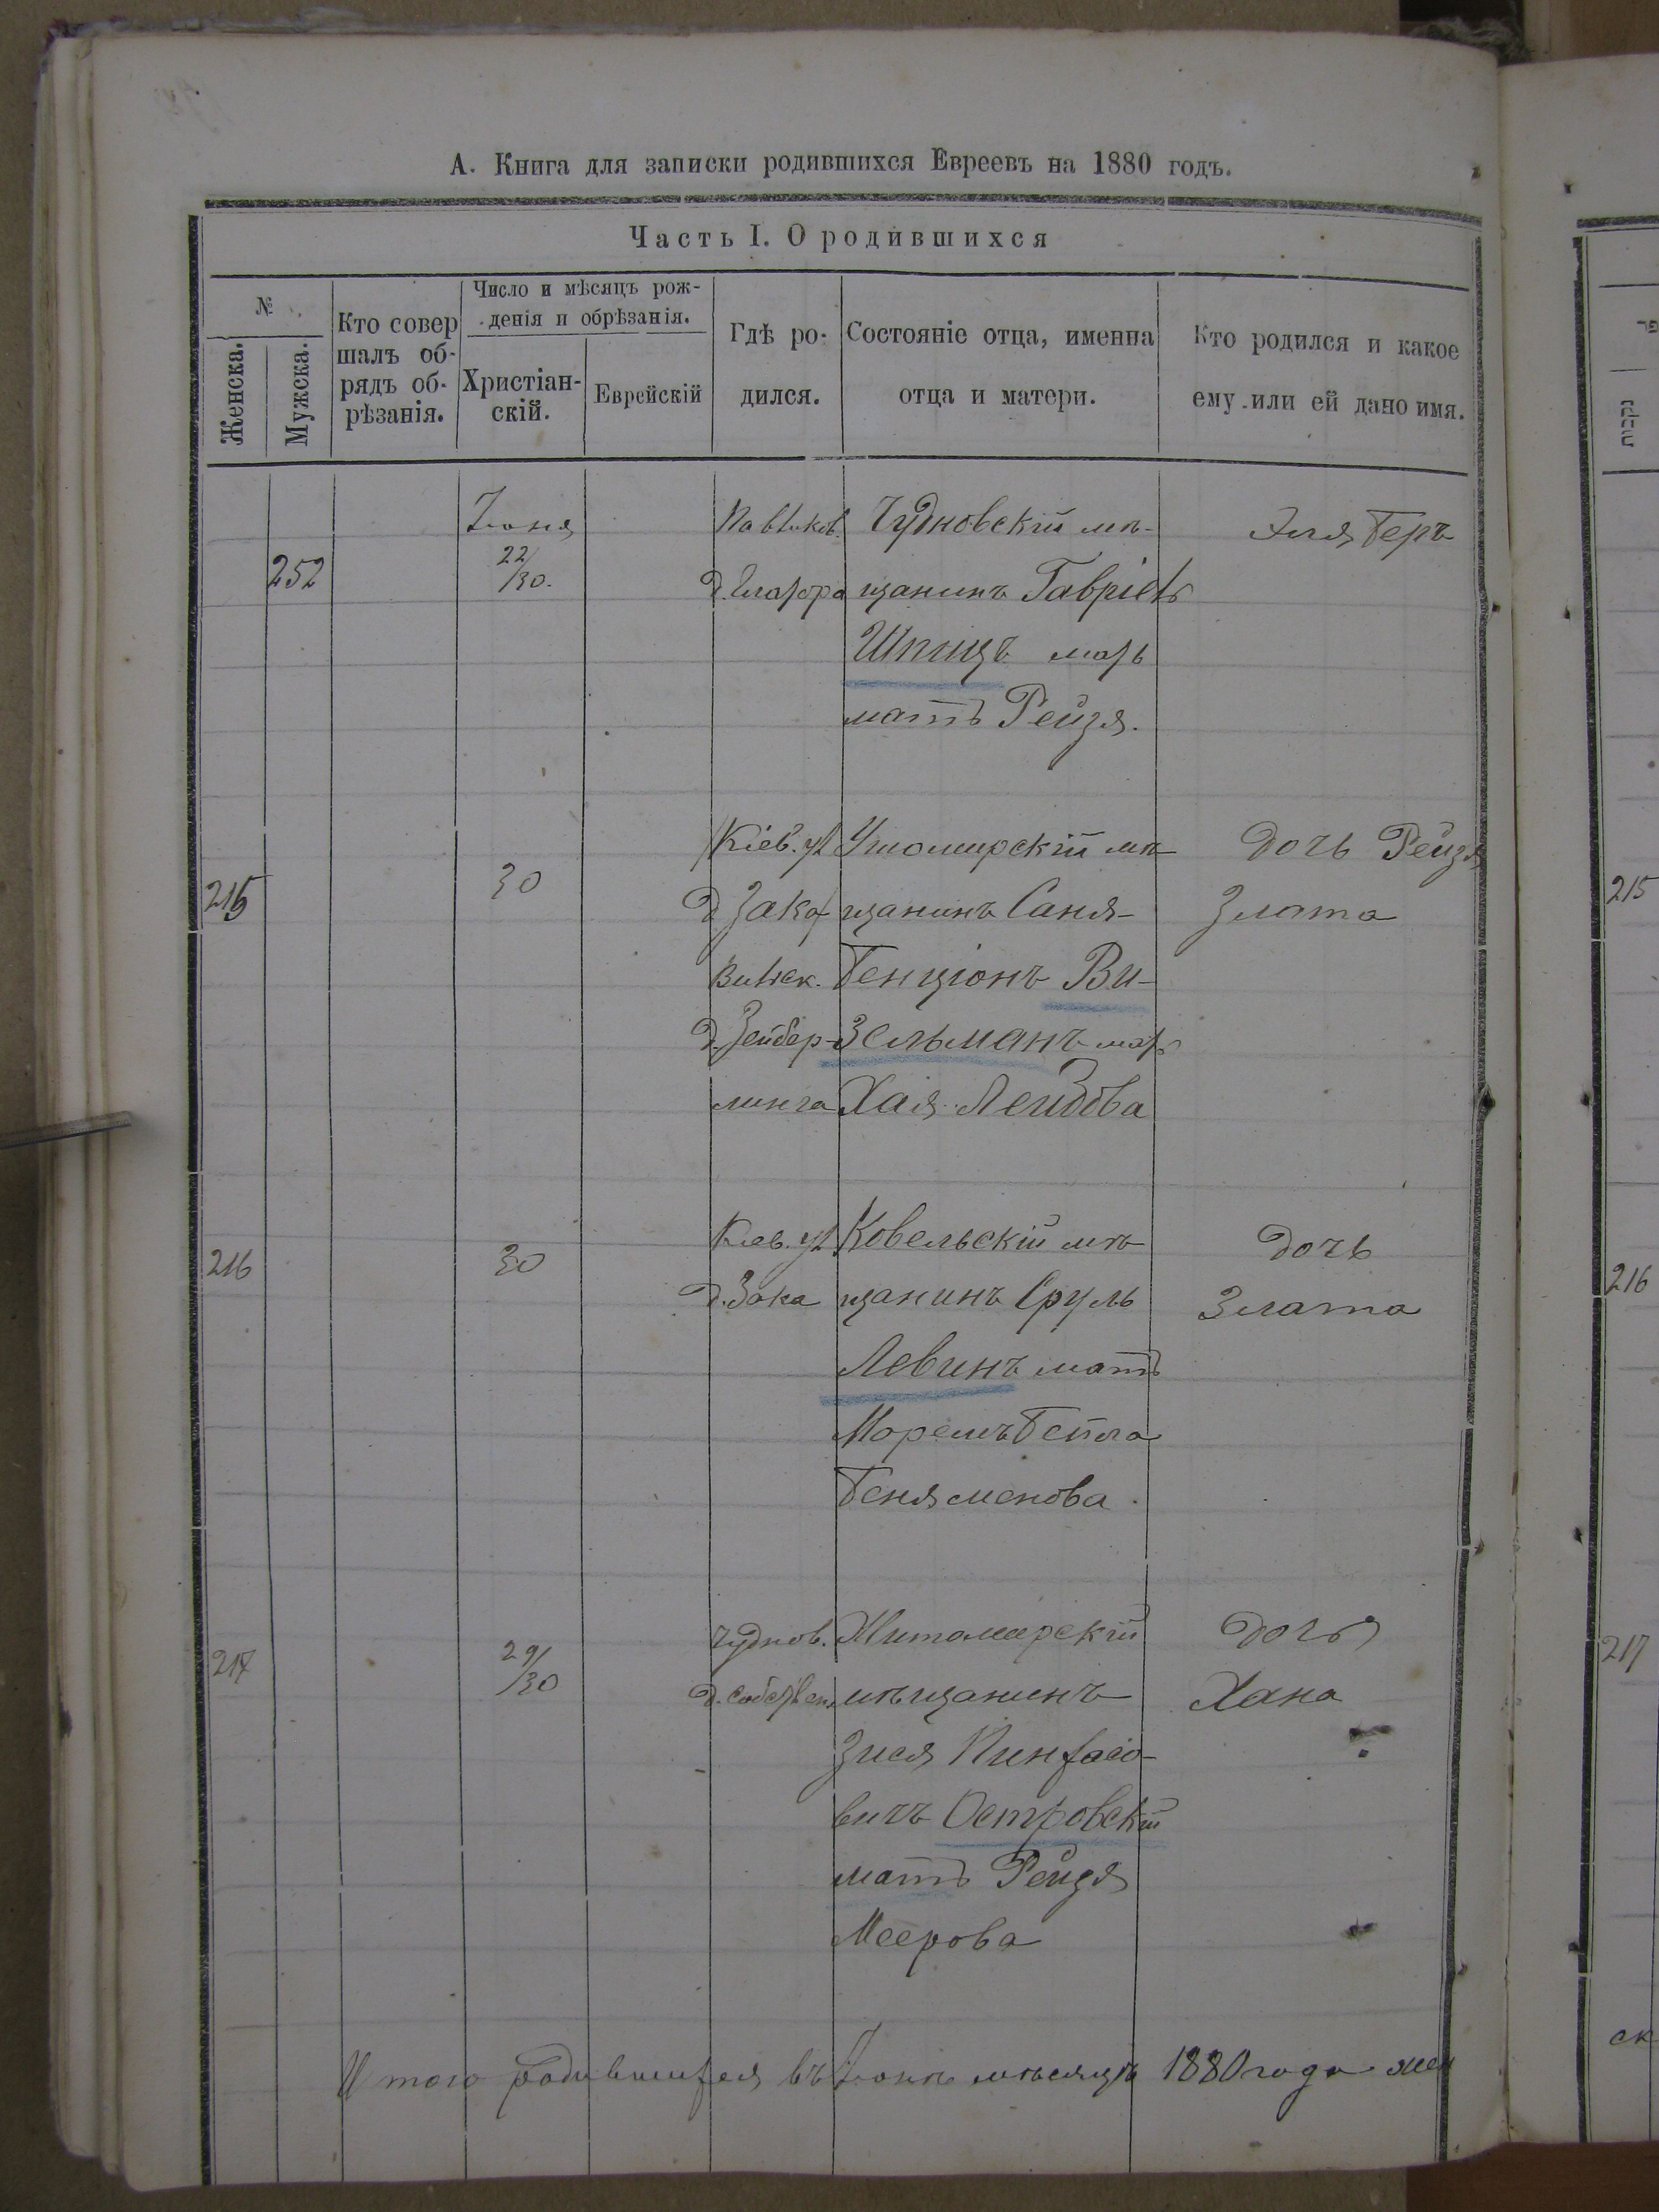 А. Книга для записки родившихся Евреевъ на 1880 годъ.
Часть I. О родившихся
№
Женска.
Мужска.
Кто совер
шалъ об-
рядъ об-
рѣзанія.
Число и мѣсяцъ рож-
денія и обрѣзанія.
Христіан-
скій.
Еврейскій
Гдѣ ро-
дился.
Состояніе отца, именна
отца и матери.
Кто родился и какое
ему или ей дано имя.
נקבות
252
Іюня
22/30.
Чудновскій мѣ-
щанинъ Гавріель
Шпицъ
мать Рейзя.
Эля Беръ
215
30
Кіев. ул
Ушомирскій мѣ-
щанинъ Саня-
Бенціонъ Ви-
зельманъ
Хая Лейбова
дочь Рейзя
Злата
215
216
30
Кіев. ул
д. Зака
Ковельскій мѣ-
щанинъ Сруль
Левинъ мать
Бейла
Беняменова
дочь
Злата
216
217
29/30
Чуднов.
д. собствен.
Житомирскій
мѣщанинъ
Зися Пинхасо-
вичъ Островскій
мать Рейзя
Меерова
дочь
Хана
217
Итого родившихся въ Іюнѣ мѣсяцѣ 1880 года жен
ск